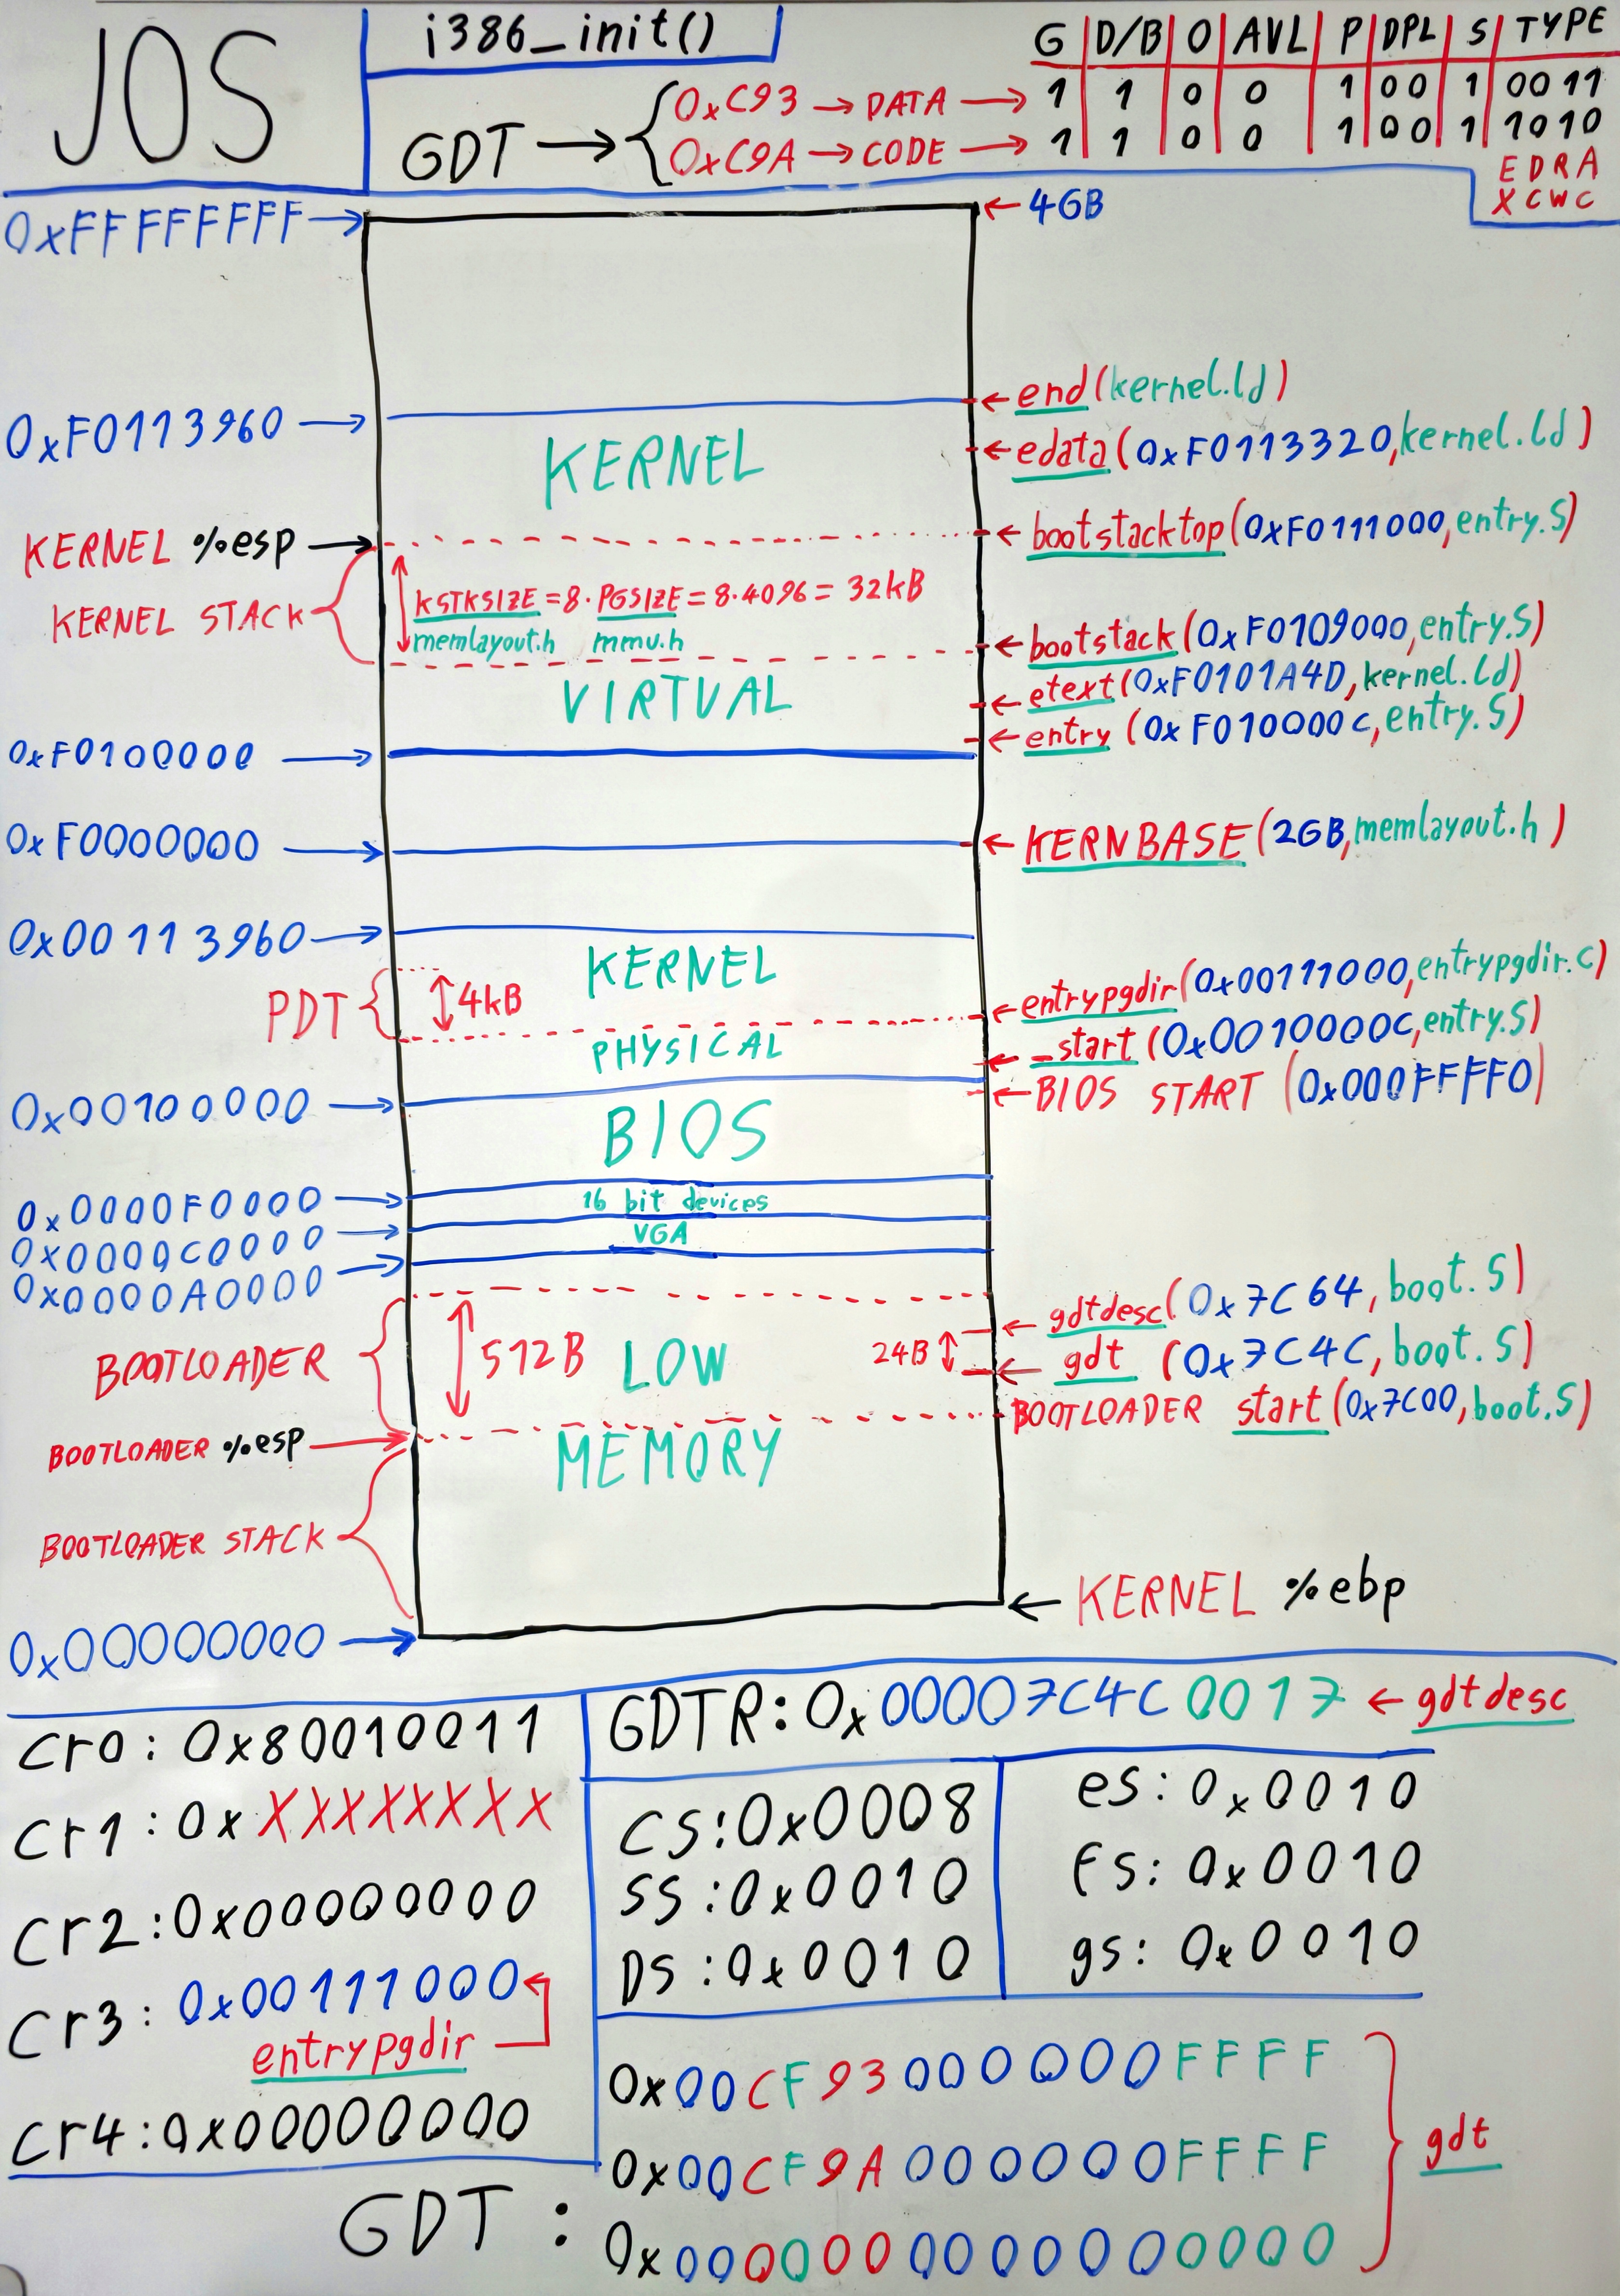 JOS
i386_init()
GDT → { 0xC93 → DATA →
0xC9A → CODE →
G | D/B | 0 | AVL | P | DPL | S | TYPE
1 1 0 0 1 00 1 0011
1 1 0 0 1 00 1 1010
E D R A
X C W C
0xFFFFFFFF →
← 4GB
← end (kernel.ld)
0xF0113960 →
KERNEL
← edata (0xF0113320, kernel.ld)
KERNEL %esp →
← bootstacktop (0xF0111000, entry.S)
KERNEL STACK
KSTKSIZE = 8 · PGSIZE = 8·4096 = 32kB
memlayout.h mmu.h
← bootstack (0xF0109000, entry.S)
VIRTUAL
← etext (0xF0101A4D, kernel.ld)
← entry (0xF010000C, entry.S)
0xF0100000 →
0xF0000000 →
← KERNBASE (2GB, memlayout.h)
0x00113960 →
KERNEL
PDT { 4kB
← entrypgdir (0x00111000, entrypgdir.c)
PHYSICAL
← _start (0x0010000C, entry.S)
← BIOS START (0x000FFFF0)
0x00100000 →
BIOS
0x0000F0000 →
16 bit devices
0x0000C0000 →
VGA
0x0000A0000 →
← gdtdesc (0x7C64, boot.S)
BOOTLOADER
512B
LOW
24B
← gdt (0x7C4C, boot.S)
BOOTLOADER start (0x7C00, boot.S)
BOOTLOADER %esp →
MEMORY
BOOTLOADER STACK
← KERNEL %ebp
0x00000000 →
cr0: 0x80010011
cr1: 0xXXXXXXXX
cr2: 0x00000000
cr3: 0x00111000
entrypgdir
cr4: 0x00000000
GDTR: 0x00007C4C0017 ← gdtdesc
CS: 0x0008
SS: 0x0010
DS: 0x0010
es: 0x0010
fs: 0x0010
gs: 0x0010
GDT :
0x00CF93000000FFFF
0x00CF9A000000FFFF
0x0000000000000000
gdt